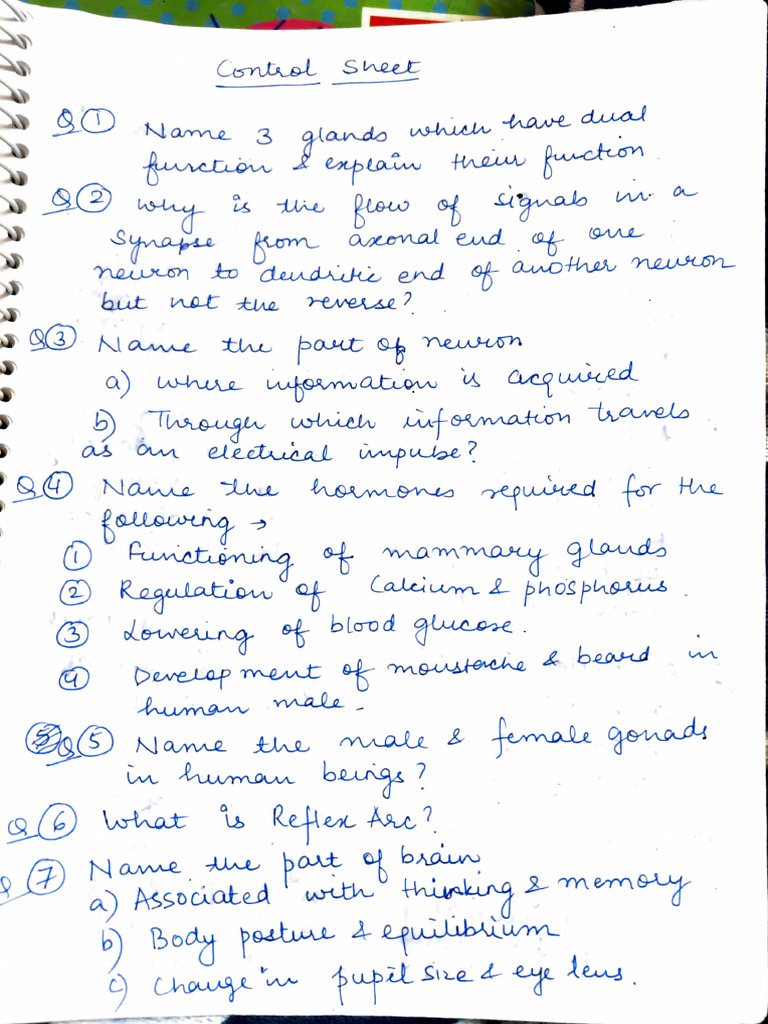 Control Sheet
Q ① Name 3 glands which have dual
function & explain their function
Q ② Why is the flow of signals in a
Synapse from axonal end of one
neuron to dendritic end of another neuron
but not the reverse?
Q ③ Name the part of neuron
a) where information is acquired
b) Through which information travels
as an electrical impulse?
Q ④ Name the hormones required for the
following →
① Functioning of mammary glands
② Regulation of Calcium & phosphorus.
③ Lowering of blood glucose.
④ Development of moustache & beard in
human male.
Q ⑤ Name the male & female gonads
in human beings?
Q ⑥ What is Reflex Arc?
Q ⑦ Name the part of brain
a) Associated with thinking & memory
b) Body posture & equilibrium
c) Change in pupil size & eye lens.